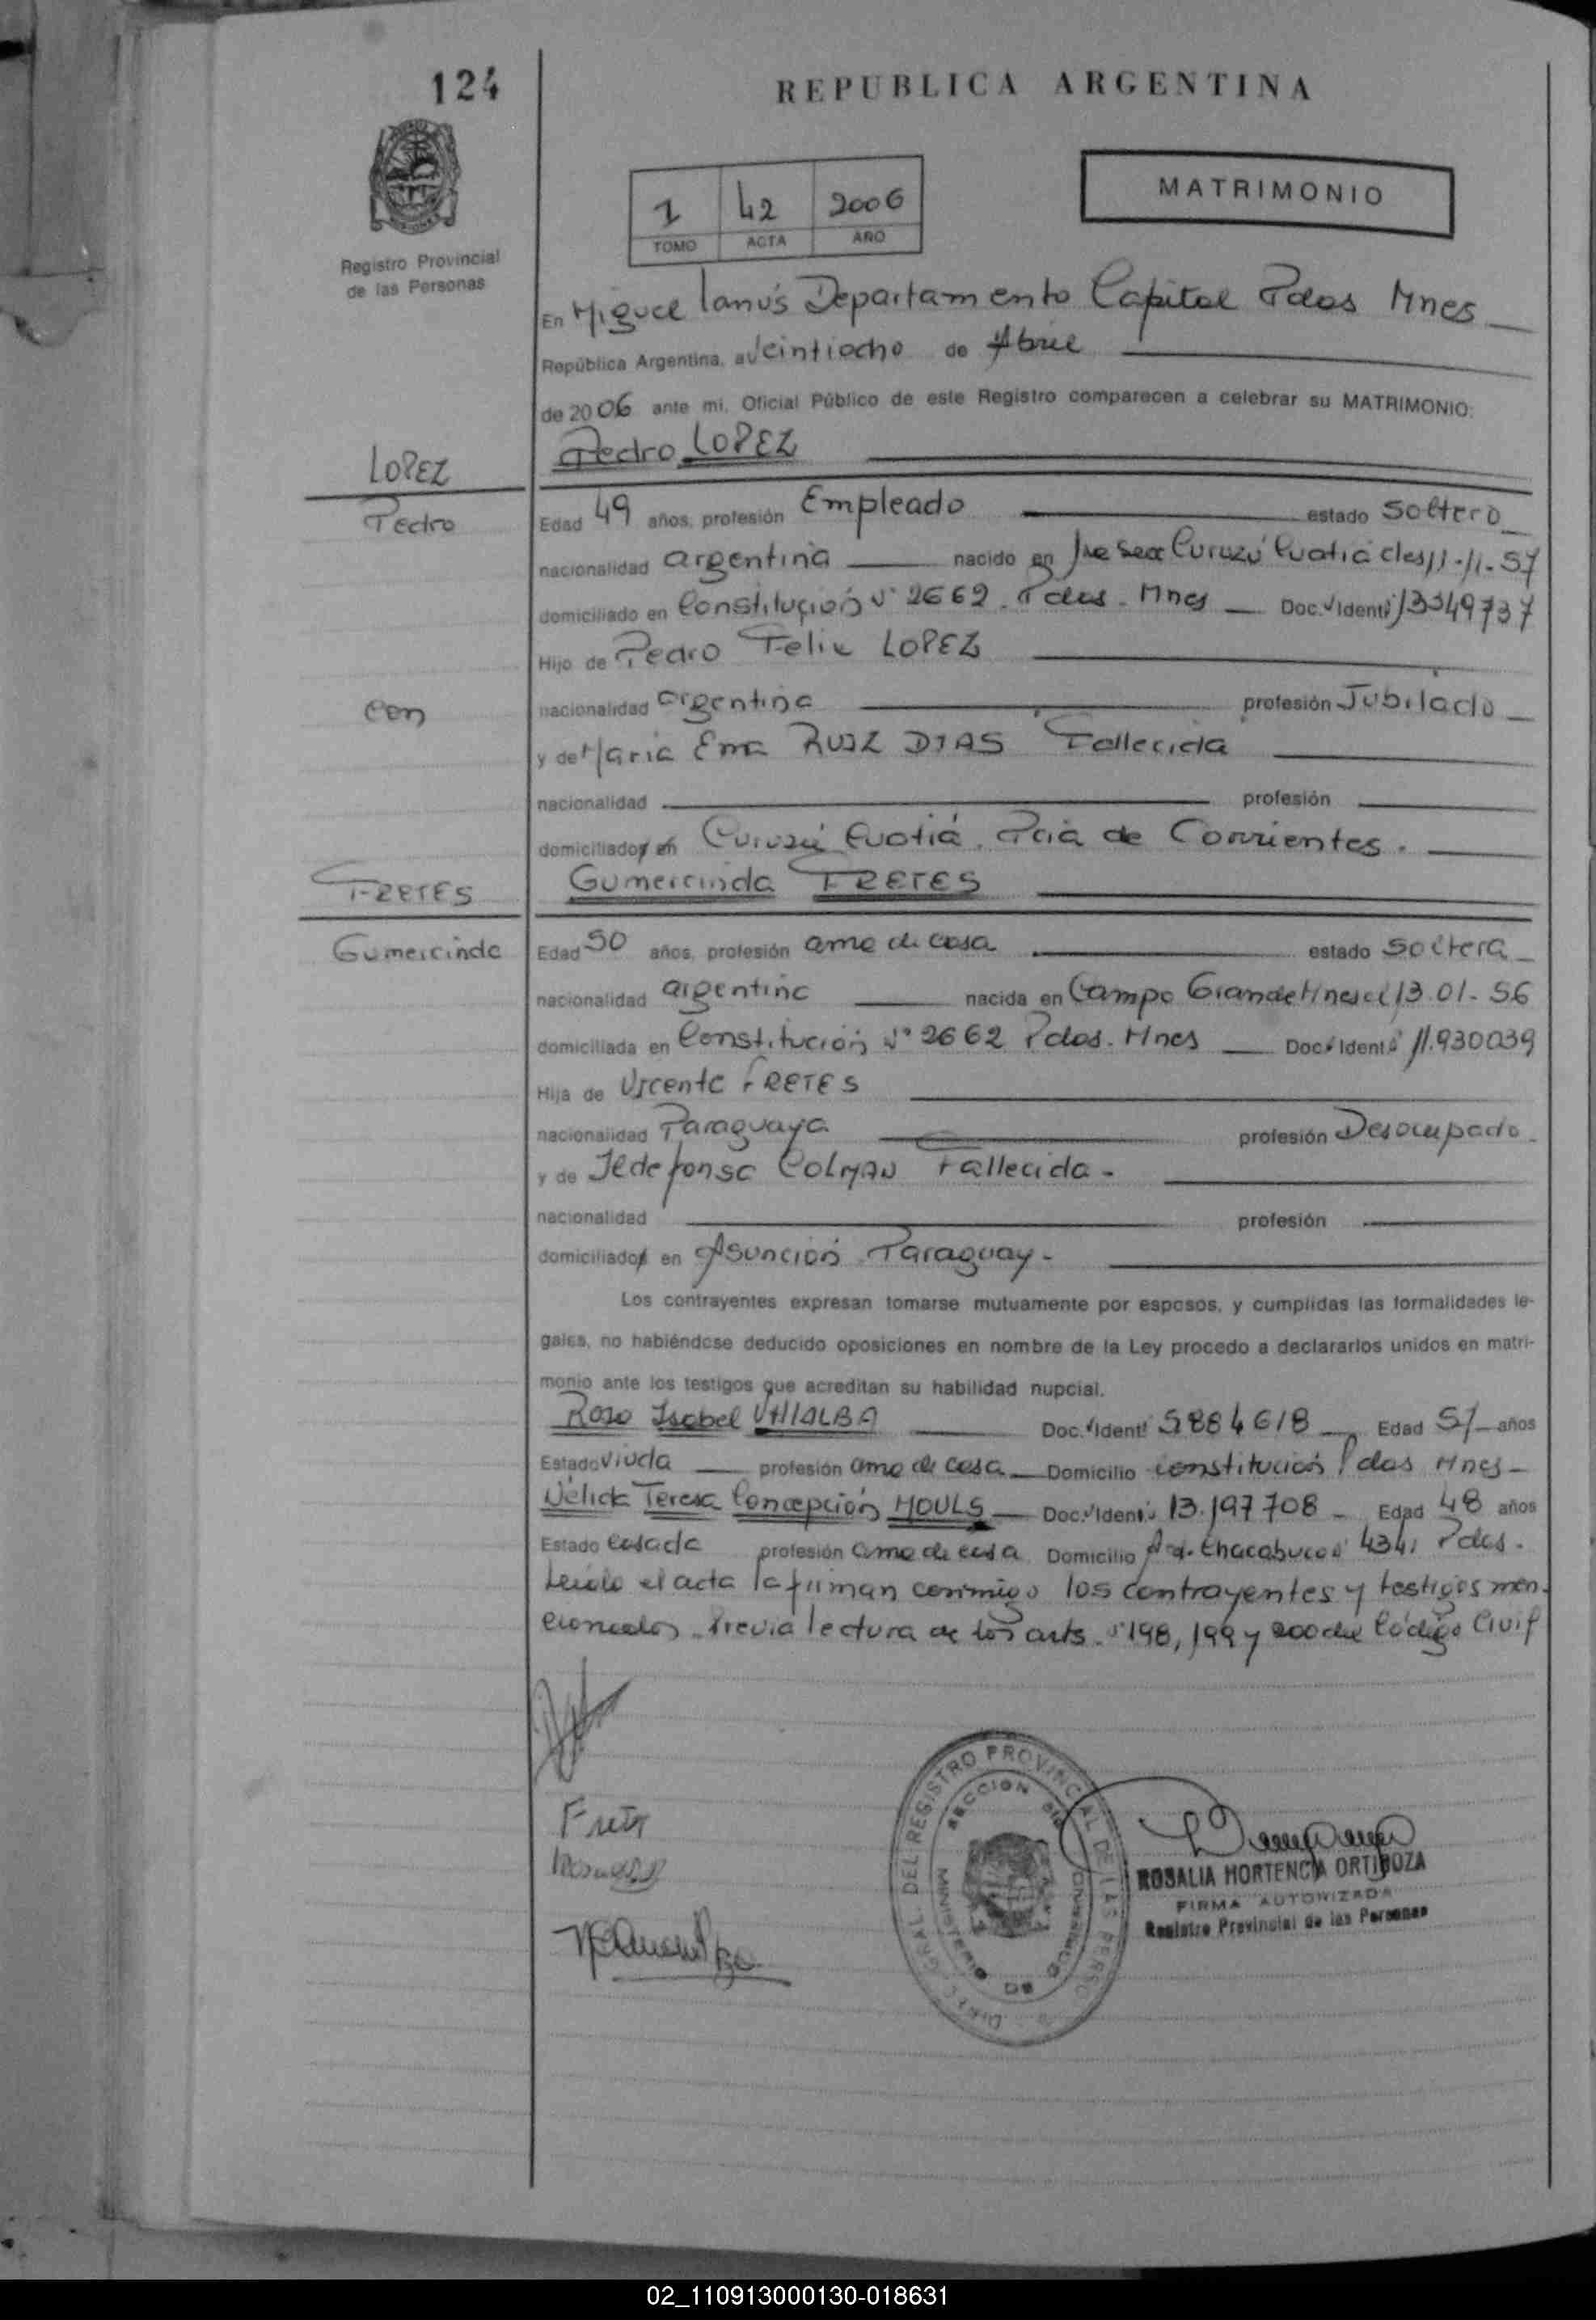 124
REPUBLICA ARGENTINA
1 42 2006
TOMO ACTA AÑO
MATRIMONIO
Registro Provincial
de las Personas
En Miguel Lanús Departamento Capital Pdas Mnes
República Argentina, a Veintiocho de Abril
de 2006 ante mi, Oficial Público de este Registro comparecen a celebrar su MATRIMONIO:
LOPEZ
Pedro LOPEZ
Pedro
Edad 49 años, profesión Empleado estado Soltero
nacionalidad argentina nacido en Curuzú Cuatiá 11-11-57
domiciliado en Constitución Nº 2662. Pdas. Mnes Doc. Ident. 13349737
Hijo de Pedro Felix LOPEZ
con
nacionalidad argentina profesión Jubilado
y de Maria Ema RUIZ DIAS Fallecida
nacionalidad profesión
domiciliado en Curuzú Cuatiá. Pcia de Corrientes.
FRETES
Gumercinda FRETES
Gumercinda
Edad 50 años, profesión ama de casa estado Soltera
nacionalidad argentina nacida en Campo Grande Mnes el 13.01-56
domiciliada en Constitución Nº 2662 Pdas. Mnes Doc. Ident. 11.930039
Hija de Vicente FRETES
nacionalidad Paraguaya profesión Desocupado
y de Ildefonsa COLMAN Fallecida-
nacionalidad profesión
domiciliado en Asunción Paraguay-
Los contrayentes expresan tomarse mutuamente por esposos, y cumplidas las formalidades le-
gales, no habiéndose deducido oposiciones en nombre de la Ley procedo a declararlos unidos en matri-
monio ante los testigos que acreditan su habilidad nupcial.
Rosa Isabel VILLALBA Doc. Ident. 5884618 Edad 51 años
Estado Viuda profesión ama de casa Domicilio constitución Pdas Mnes-
Nélida Teresa Concepción MOULS Doc. Ident. 13.197708 Edad 48 años
Estado casada profesión ama de casa Domicilio Chacabuco 4341 Pdas.
Leída el acta la firman conmigo los contrayentes y testigos men-
cionados. Previa lectura de los arts. 198, 199 y 200 del Código Civil
DIREC. GRAL. DEL REGISTRO PROVINCIAL DE LAS PERSO
SECCION
MINISTERIO DE GOBIERNO
ROSALIA HORTENCIA ORTIGOZA
FIRMA AUTORIZADA
Registro Provincial de las Personas
02_110913000130-018631